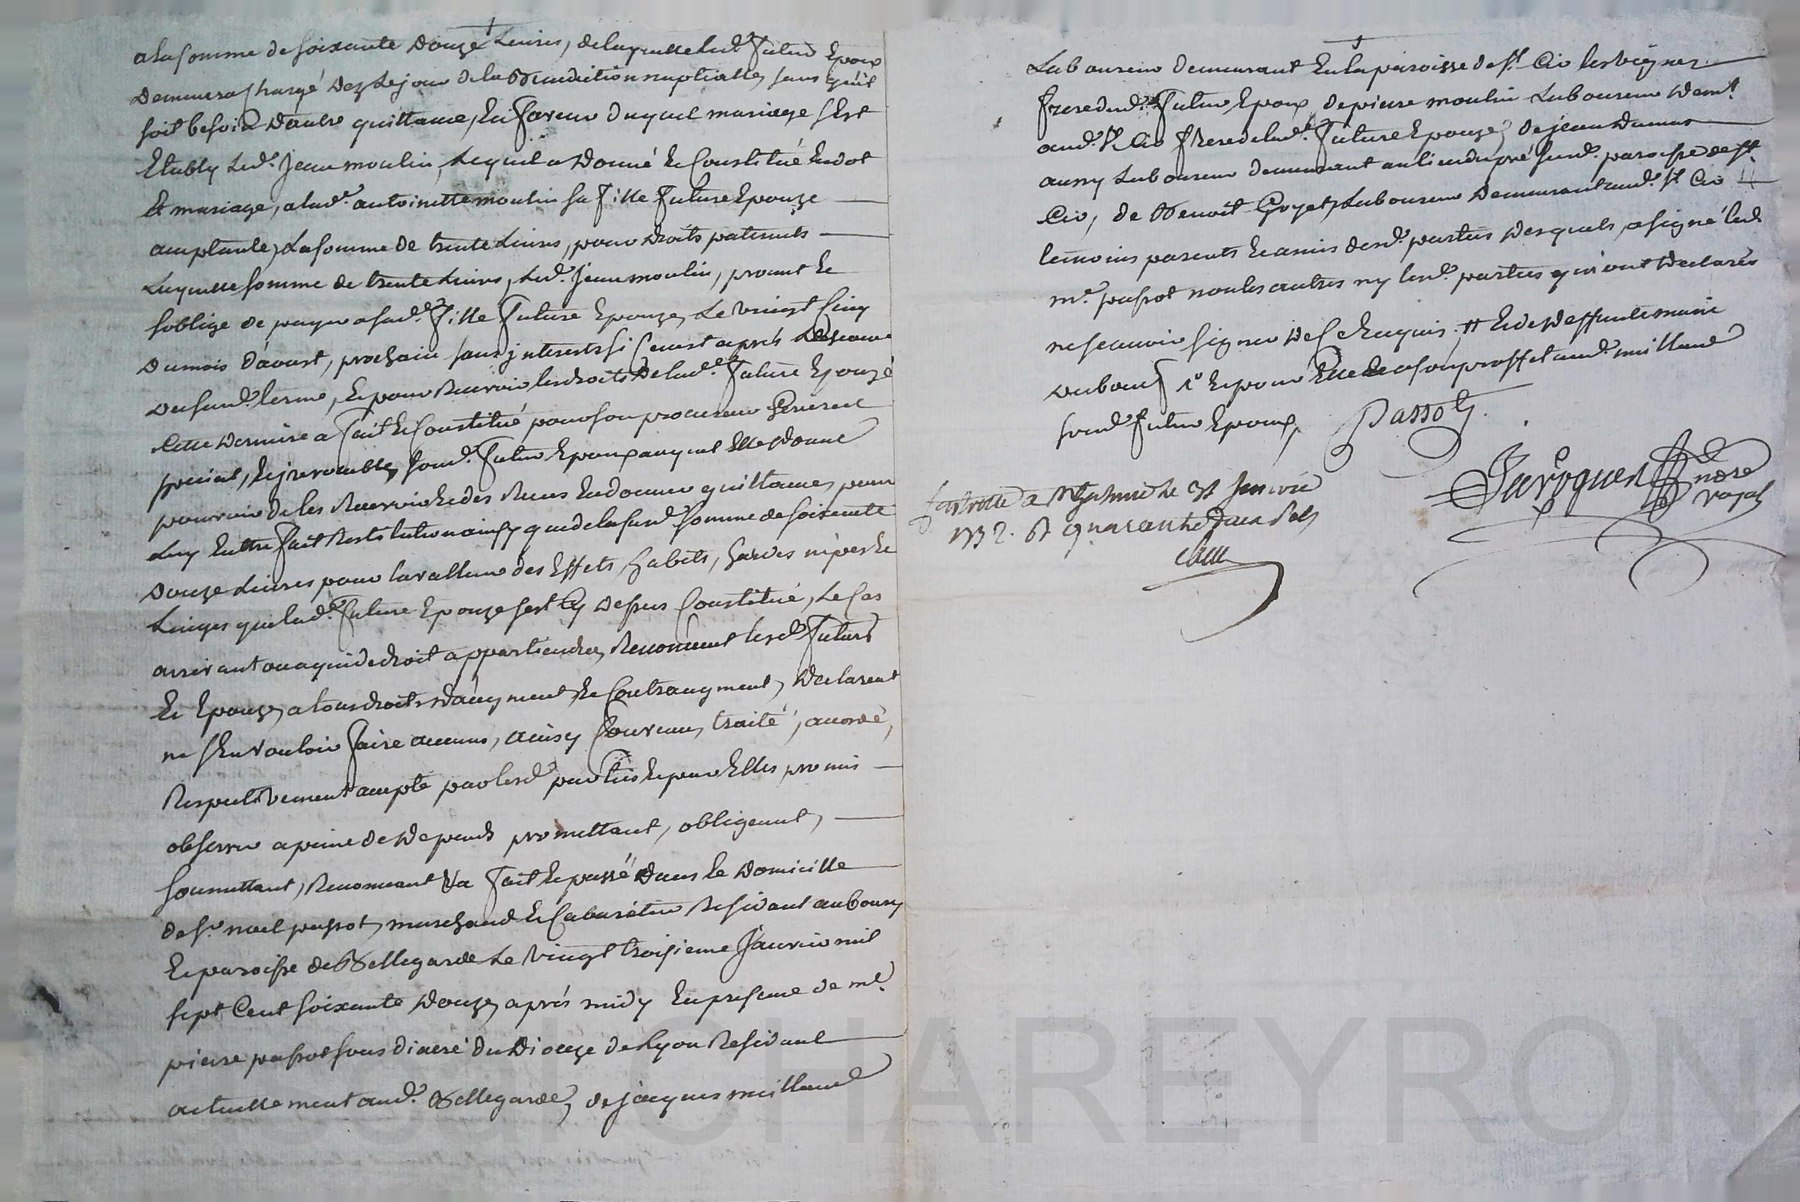 a la somme de soixante douze Livres, de laquelle led.t futur Epoux
demeurera chargé dez le jour de la Benediction nuptialle, sans quil
soit besoin dautre quittance, En faveur duquel mariage s'est
Etably led.t Jean moulin, Lequel a donné et Constitué en dot
et mariage, a lad.e antoinette moulin sa fille future Epouze
acceptante, La somme de trente Livres, pour droits paternels
Laquelle somme de trente Livres, led.t Jean moulin, promet et
soblige de payer a sad.e fille future Epouze, Le vingt cinq
du mois daoust, prochain sans jnterests si ce nest après
dud. terme, Et pour Recevoir les droits de lad.e future Epouze
Cette derniere a fait et Constitué pour son procureur General
special, et jrrevocable, sond. futur Epoux auquel Elle donne
pouvoir de les Recevoir et des Recus En donner quittances, pour
Luy Estre fait Restitution ainsy que de la susd. somme de soixante
douze Livres pour la valleur des Effets, habits, hardes nipes et
Linges que lad.e future Epouze sest Cy dessus Constitué, Le Cas
arrivant ou a qui de droit appartiendra, Renoncent lesd. futurs
Et Epouze, a tous droits d'augment et Contraugment, declarent
ne s'En vouloir faire aucuns, ainsy Convenu, traité, accordé,
Respectivement accepté par lesd. parties et par Elles promis
observer a peine de depends promettant, obligeant,
soumettant, Renonceant &a fait et passé dans le domicille
de s.r noel passot, marchand et Cabaretier Residant au bourg
Et paroisse de Bellegarde Le vingt troisieme Janvier mil
sept Cent soixante douze, après midy En presence de m.e
pierre passot sous diacre du Dioceze de Lyon Residant
actuellement aud. Bellegarde, de jacques milland
Laboureur demeurant En la paroisse de s.t Cir les vignes
frere dud. futur Epoux, de pierre moulin Laboureur dem.t
aud. s.t Cir frere de lad. future Epouze, de jean dumas
aussy Laboureur demeurant au lieu du pré susd. paroisse de s.t
Cir, de Benoit Goyet, Laboureur demeurant aud. s.t Cir
temoins parents et amis desd. parties desquels, a signé led.
m.e passot non les autres ny lesd. parties qui ont declarés
ne scavoir signer de Ce Enquis # Et de deffunte marie
dubouc son profit aud. milland
sond. futur Epoux,
Passot
Jaroquet
nore
royal
Controllé a St Galmier le 31 Janvier
1772. Rt quarante deux sols
CHAREYRON